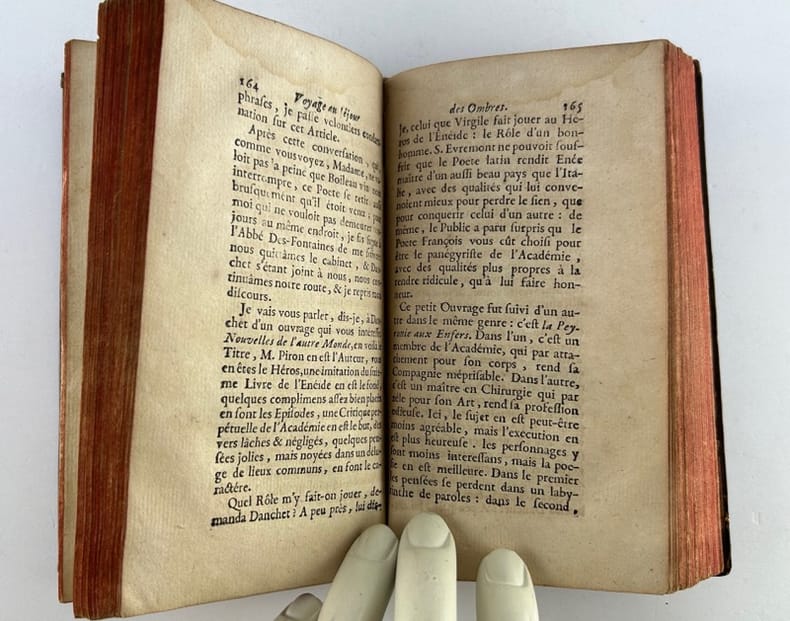 164 Voyage au séjour
phrases, je passe volontiers condam-
nation sur cet Article.
Après cette conversation, qui,
comme vous voyez, Madame, ne va-
loit pas 'a peine que Boileau vin nous
interrompre, ce Poete se retira aussi
brusquement qu'il étoit venu; pour
moi qui ne vouloit pas demeurer tou-
jours au même endroit, je fis signe à
l'Abbé Des-Fontaines de me suivre
nous quittâmes le cabinet, & Dan-
chet s'étant joint à nous, nous con-
tinuâmes notre route, & je repris mon
discours.
Je vais vous parler, dis-je, à Dan-
chet d'un ouvrage qui vous intéresse
Nouvelles de l'autre Monde, en voilà le
Titre, M. Piron en est l'Auteur, vous
en êtes le Héros, une imitation du sixié-
me Livre de l'Enéide en est le fond,
quelques complimens assez bien placés
en sont les Episodes, une Critique per-
pétuelle de l'Académie en est le but, des
vers lâches & négligés, quelques pen-
sées jolies, mais noyées dans un délu-
ge de lieux communs, en font le ca-
ractére.
Quel Rôle m'y fait-on jouer, de-
manda Danchet? A peu près, lui dis-
des Ombres. 165
je, celui que Virgile fait jouer au He-
ros de l'Enéide: le Rôle d'un bon-
homme. S. Evremont ne pouvoit souf-
frit que le Poete latin rendit Enée
maître d'un aussi beau pays que l'Ita-
lie, avec des qualités qui lui conve-
noient mieux pour perdre le sien, que
pour conquerir celui d'un autre: de
même, le Public a paru surpris qu le
Poete François vous cût choisi pour
être le panégyriste de l'Académie,
avec des qualités plus propres à la
rendre ridicule, qu'à lui faire hon-
neur.
Ce petit Ouvrage fut suivi d'un au-
tre dans le même genre: c'est la Pey-
ronie aux Enfers. Dans l'un, c'est un
membre de l'Académie, qui par atta-
chement pour son corps, rend sa
Compagnie méprisable. Dans l'autre,
c'est un maître en Chirurgie qui par
zéle pour son Art, rend sa profession
odieuse. Ici, le sujet en est peut-être
moins agréable, mais l'exécution en
est plus heureuse. les personnages y
sont moins interessans, mais la poe-
sie en est meilleure. Dans le premier
les pensées se perdent dans un laby-
rinthe de paroles: dans le second,